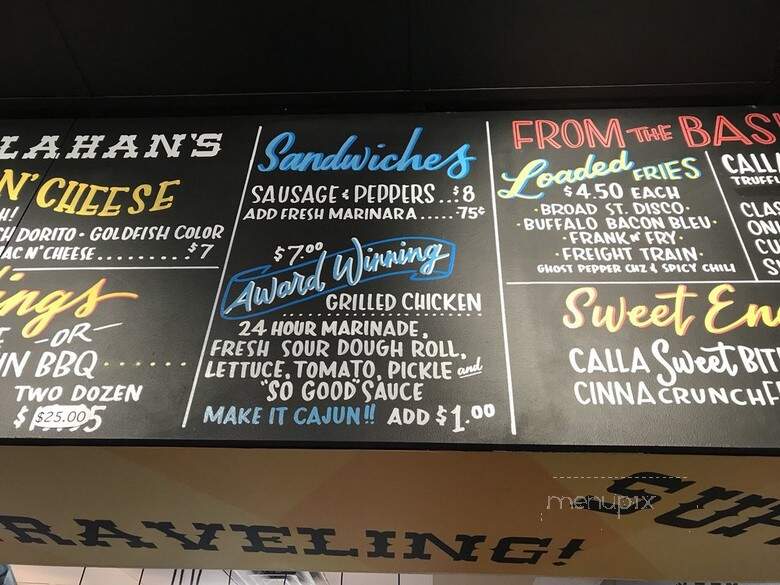 LAHAN'S
N' CHEESE
H!
CH DORITO · GOLDFISH COLOR
MAC N' CHEESE........$7
ings
-OR-
IN BBQ ......
TWO DOZEN
$ $25.00 5
Sandwiches
SAUSAGE & PEPPERS...$8
ADD FRESH MARINARA.....75¢
$7.00
Award Winning
GRILLED CHICKEN
24 HOUR MARINADE,
FRESH SOUR DOUGH ROLL,
LETTUCE, TOMATO, PICKLE and
"SO GOOD" SAUCE
MAKE IT CAJUN!! ADD $1.00
FROM THE BAS
Loaded FRIES
$4.50 EACH
· BROAD ST. DISCO ·
· BUFFALO BACON BLEU ·
· FRANK N' FRY ·
· FREIGHT TRAIN ·
GHOST PEPPER CHZ & SPICY CHILI
CALL
TRUFFL
CLAS
ON
CU
Sweet En
CALLA Sweet BIT
CINNACRUNCH F
RAVELING!
SUP
menupix